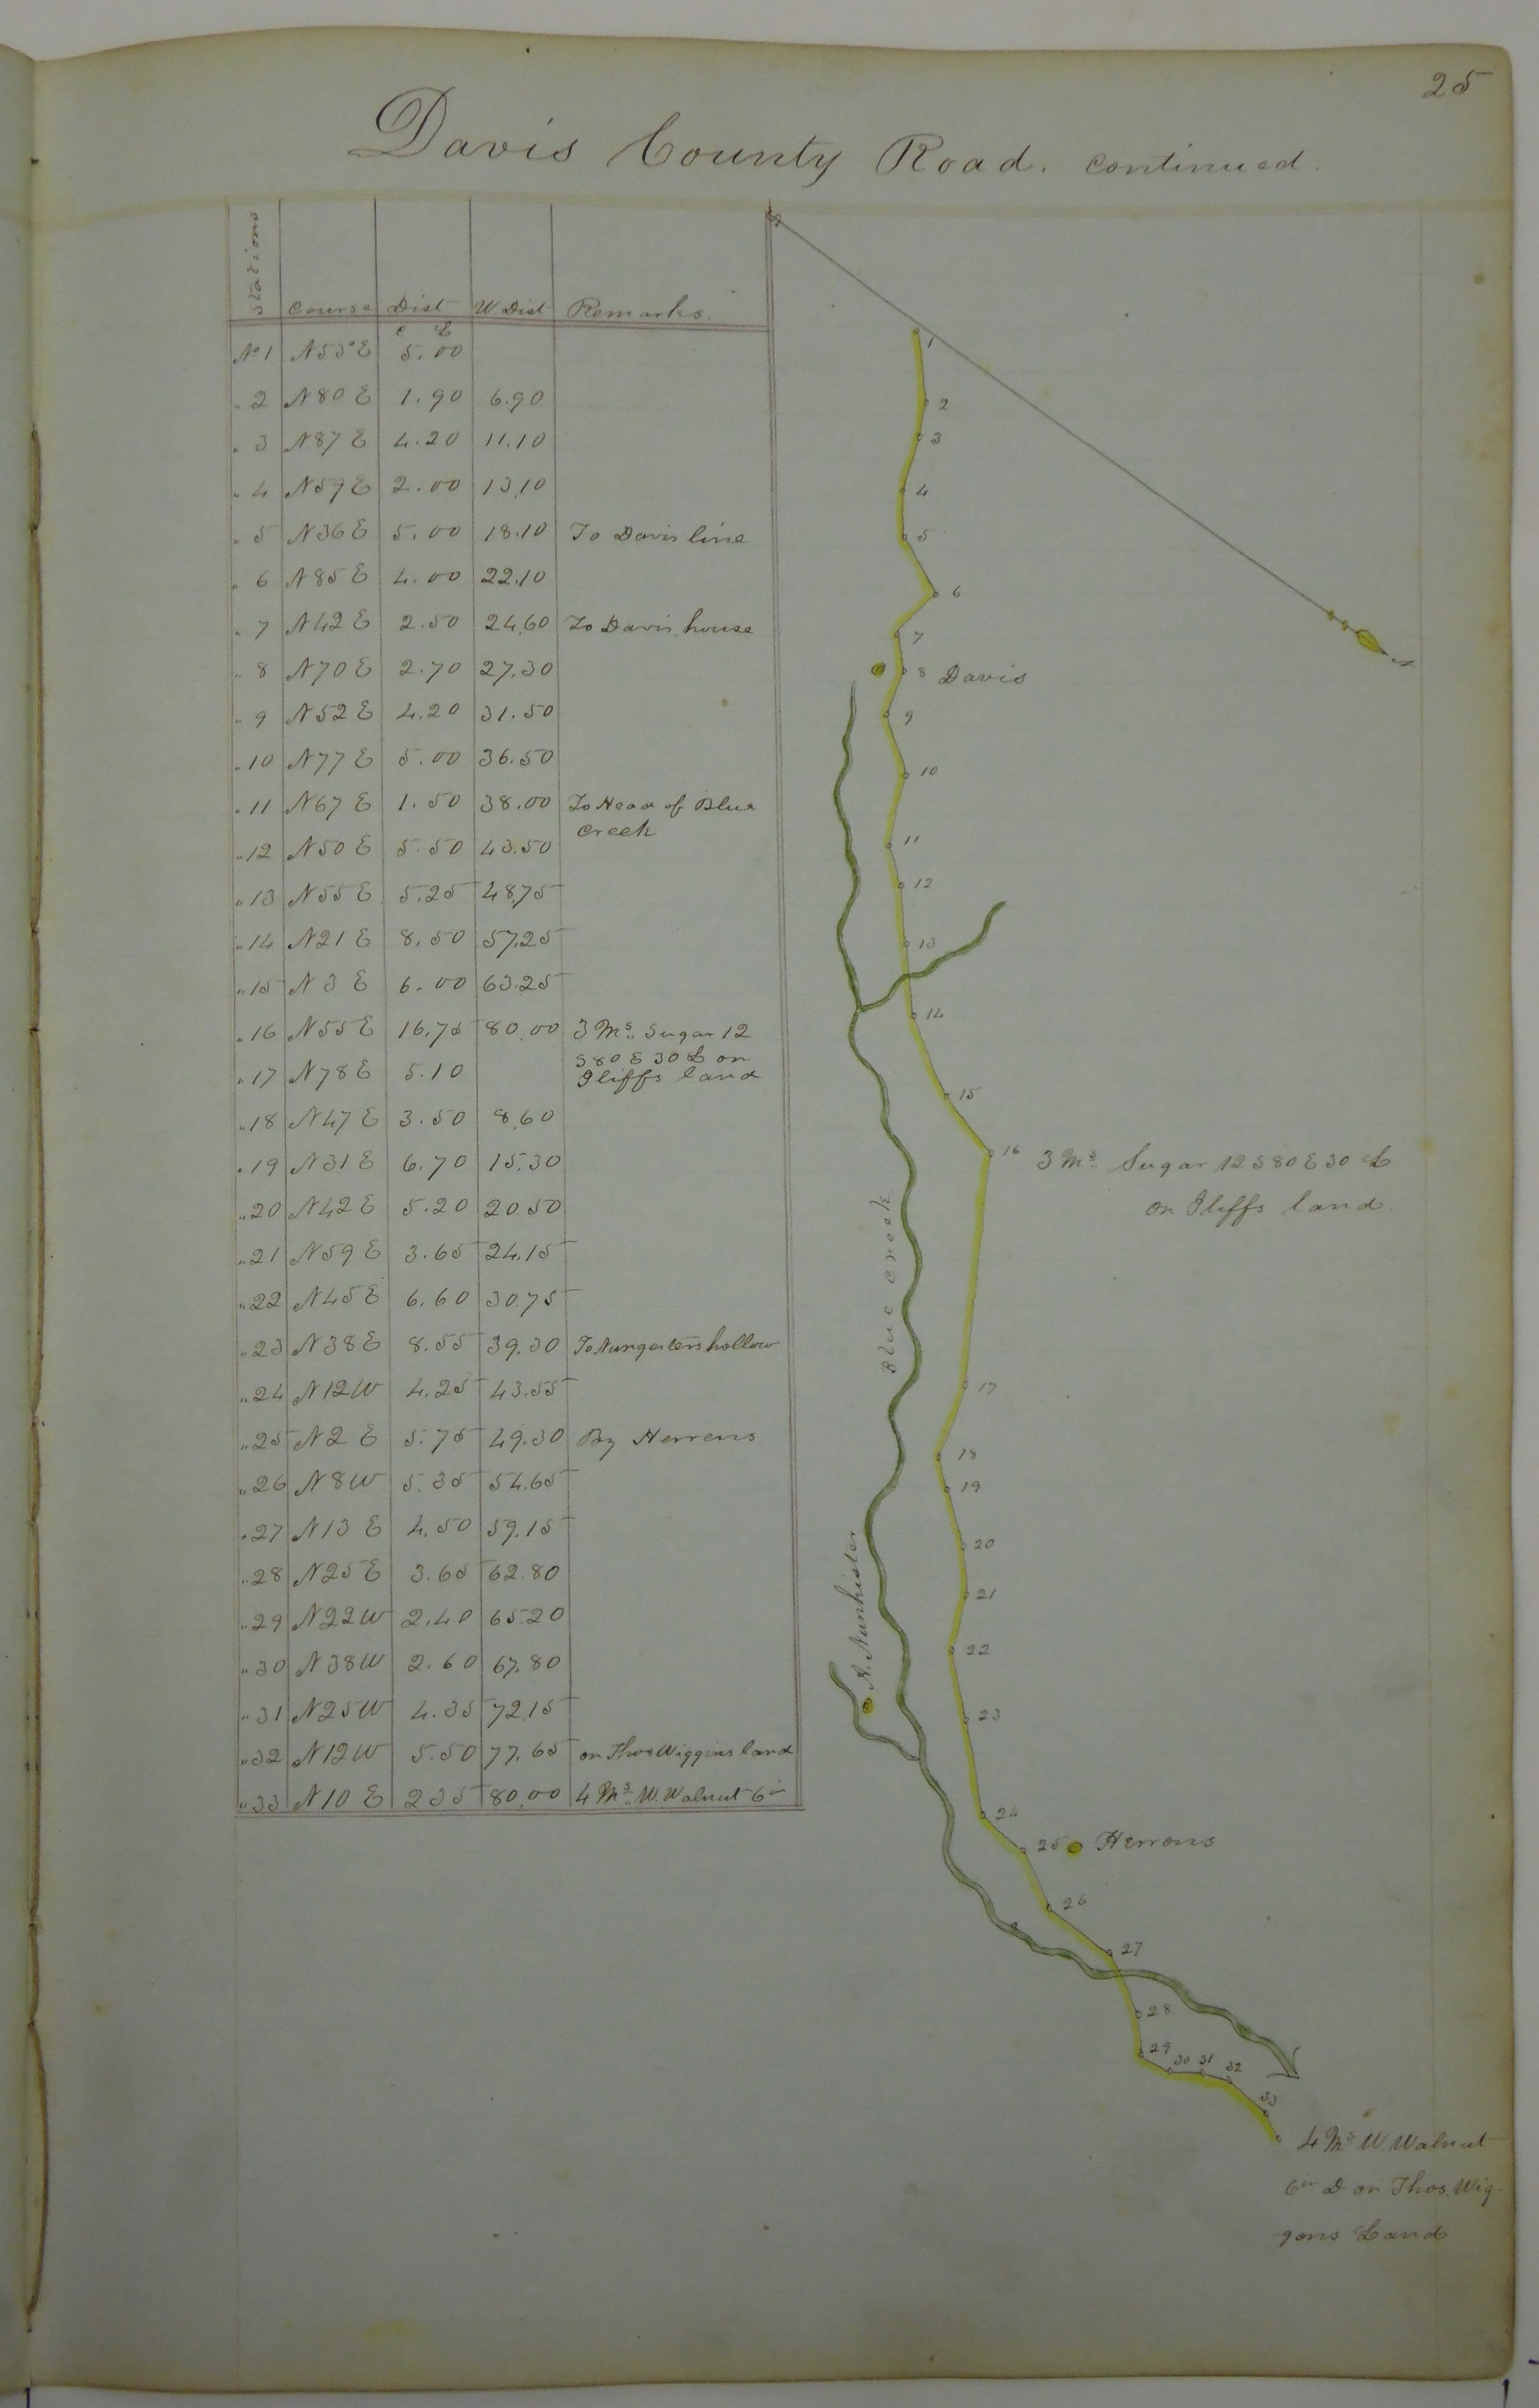 25
Davis County Road. continued.
Stations Course Dist W. Dist Remarks.
C L
No 1 N53°E 5.00
" 2 N80E 1.90 6.90
" 3 N87E 4.20 11.10
" 4 N59E 2.00 13.10
" 5 N36E 5.00 18.10 To Davis line
" 6 N85E 4.00 22.10
" 7 N42E 2.50 24.60 To Davis house
" 8 N70E 2.70 27.30
" 9 N52E 4.20 31.50
" 10 N77E 5.00 36.50
" 11 N67E 1.50 38.00 To Head of Blue
creek
" 12 N50E 5.50 43.50
" 13 N55E 5.25 48.75
" 14 N21E 8.50 57.25
" 15 N3E 6.00 63.25
" 16 N55E 16.75 80.00 3 Ms. Sugar 12
S80E30L on
" 17 N78E 5.10 Iliffs land
" 18 N47E 3.50 8.60
" 19 N31E 6.70 15.30
" 20 N42E 5.20 20.50
" 21 N59E 3.65 24.15
" 22 N45E 6.60 30.75
" 23 N38E 8.55 39.30 To Nungesters hollow
" 24 N12W 4.25 43.55
" 25 N2E 5.75 49.30 By Herrens
" 26 N8W 5.35 54.65
" 27 N13E 4.50 59.15
" 28 N25E 3.65 62.80
" 29 N22W 2.40 65.20
" 30 N38W 2.60 67.80
" 31 N25W 4.35 72.15
" 32 N12W 5.50 77.65 on Thos Wiggins land
" 33 N10E 235 80.00 4 Ms. W. Walnut 6in
1
2
3
4
5
6
7
8 Davis
9
10
11
12
13
14
15
16 3 Ms. Sugar 12 S80E30 L
on Iliffs land.
Blue creek
17
18
19
20
21
22
A. Nunhister
23
24
25 Herrons
26
27
28
29
30 31 32
33
4 Ms W. Walnut
6in D on Thos. Wig
gons Land